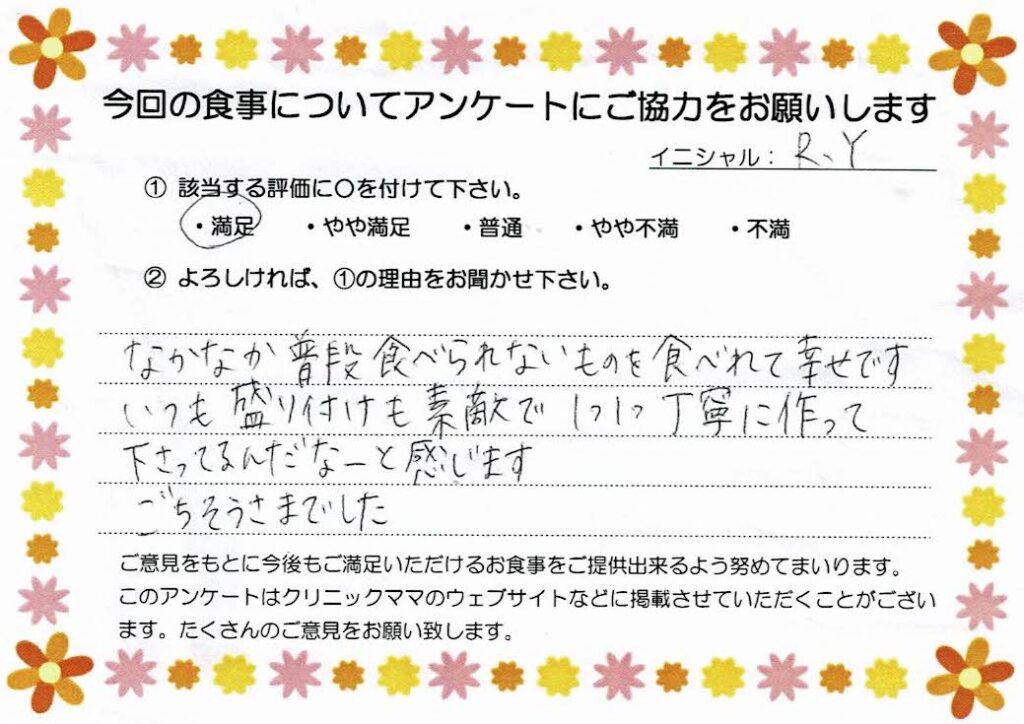 今回の食事についてアンケートにご協力をお願いします
イニシャル： R、Y
① 該当する評価に〇を付けて下さい。
・満足 ・やや満足 ・普通 ・やや不満 ・不満
② よろしければ、①の理由をお聞かせ下さい。
なかなか普段食べられないものを食べれて幸せです
いつも盛り付けも素敵で1つ1つ丁寧に作って
下さってるんだなーと感じます
ごちそうさまでした
ご意見をもとに今後もご満足いただけるお食事をご提供出来るよう努めてまいります。
このアンケートはクリニックママのウェブサイトなどに掲載させていただくことがござい
ます。たくさんのご意見をお願い致します。